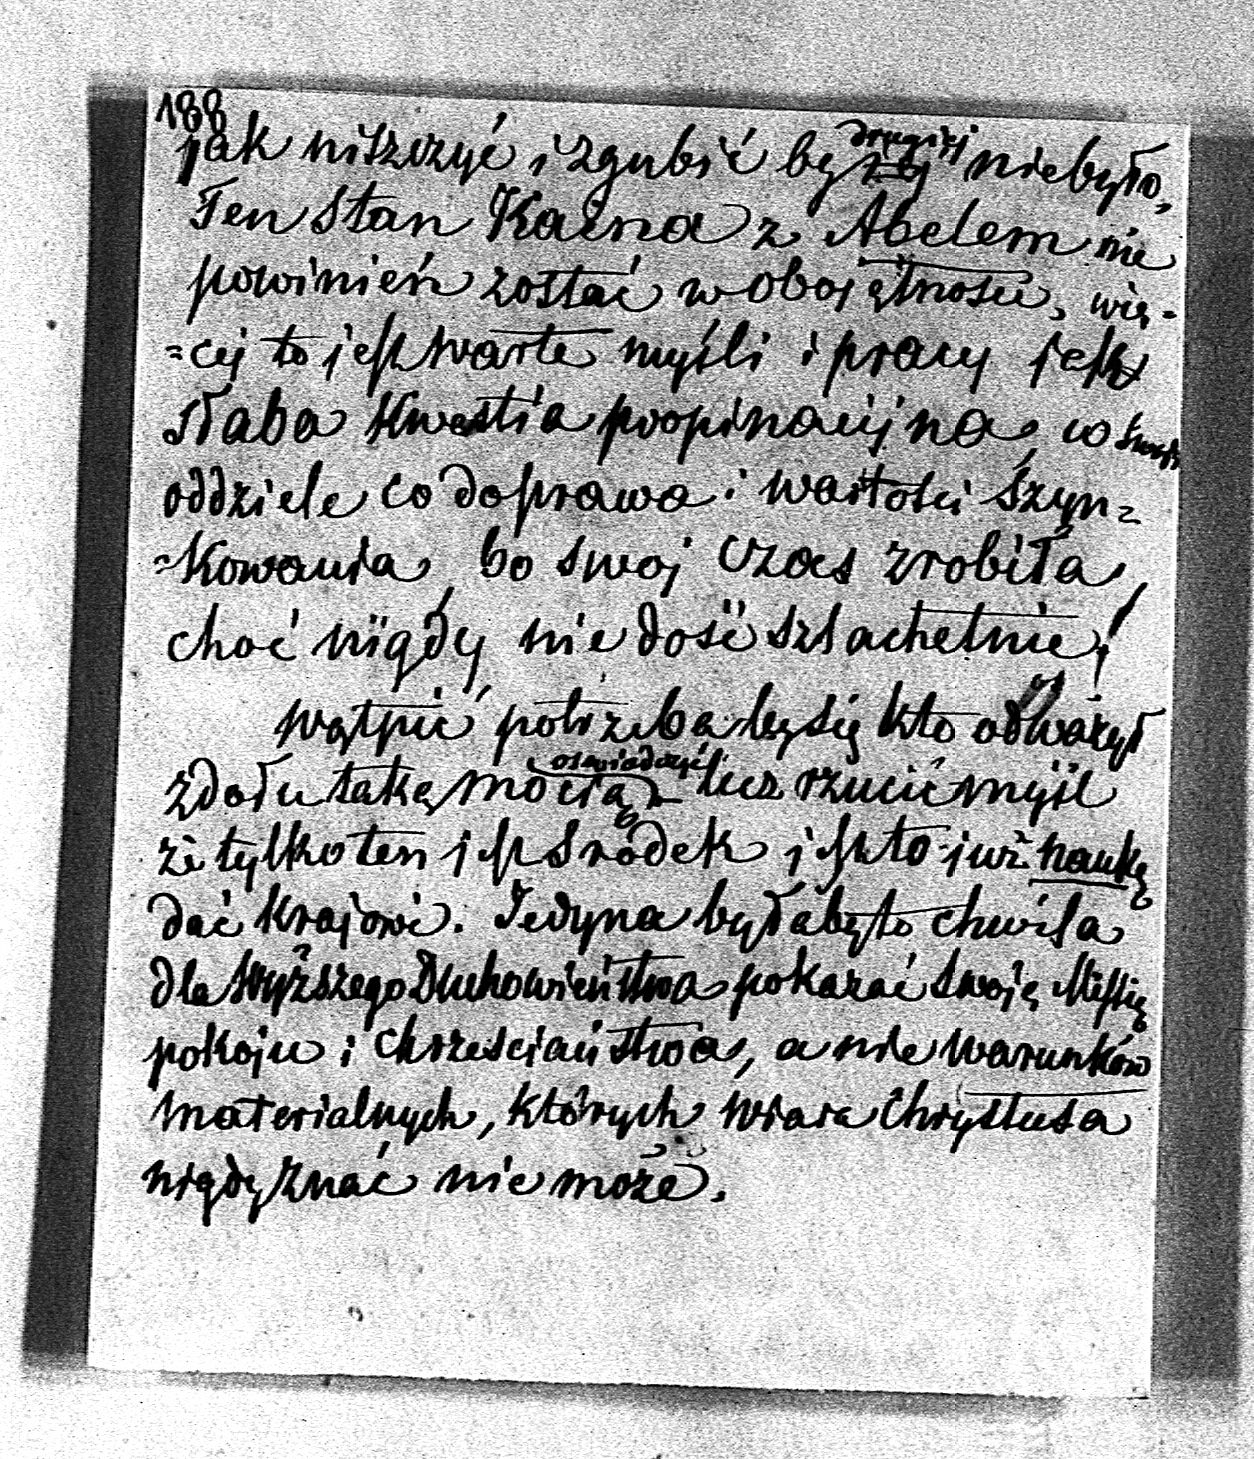 188
jak niszczyć i zgubić by drugiej niebyło,
Ten stan Kaina z Abelem nie
powinień zostać w obojętności, wię-
=cej to jest warte myśli i pracy jak
słaba kwestia propinacyjna, co
oddziele co do prawa i wartości szyn=
=kowania, bo swoj czas zrobiła,
choć nigdy nie dość szlachetnie!
wątpić potrzeba by się kto odważył
zdołu taką mocią oswiadczyć lecz rzucić myśl
że tylko ten jest srodek jest to już naukę
dać krajowi. Jedyna byłaby to chwila
dla wyższego Duchowieństwa pokazać swoję Missię
pokoju i chrześciaństwa, a nie warunków
materialnych, których wiara Chrystusa
nigdy znać nie może.